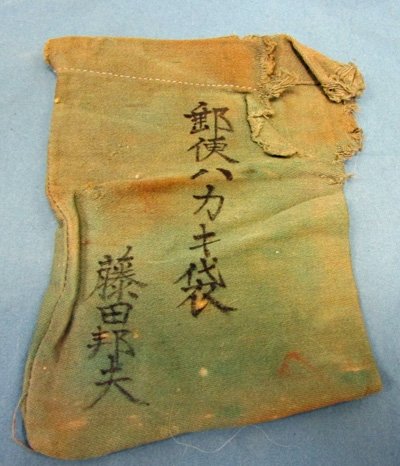 郵便ハカキ袋
藤田邦夫